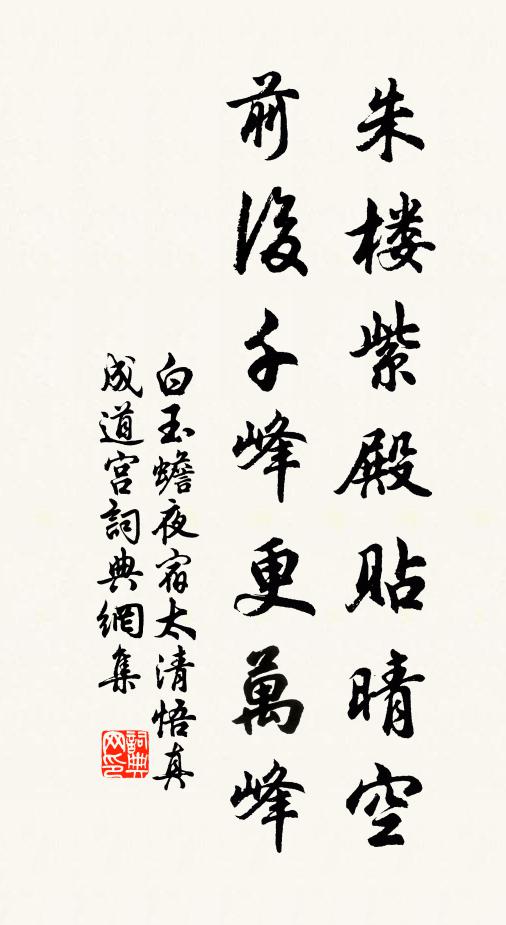 朱楼紫殿貼晴空
前後千峰更萬峰
白玉蟾夜宿太清悟真
成道宫詞典網集
詞典网印